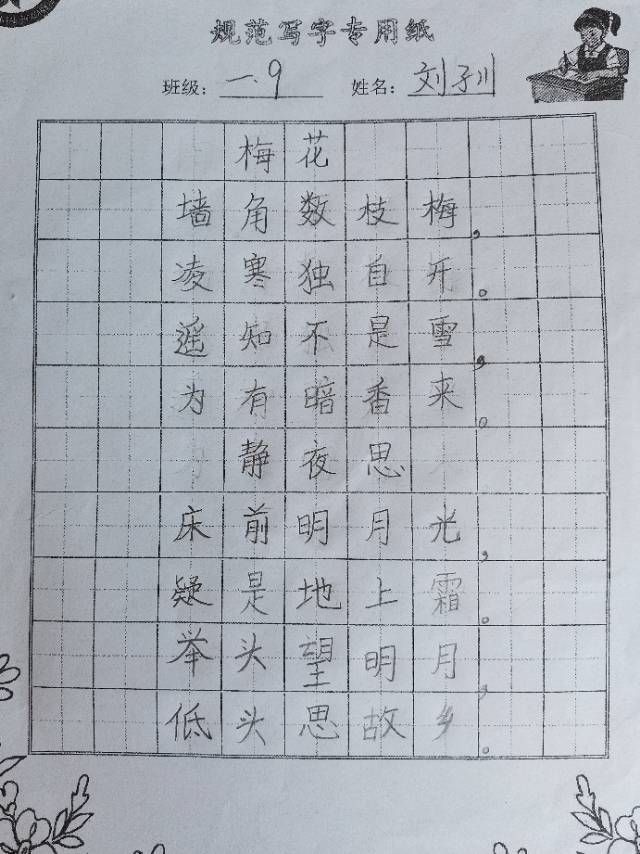 规范写字专用纸
班级：一.9 姓名：刘子川
梅花
墙角数枝梅，
凌寒独自开。
遥知不是雪，
为有暗香来。
静夜思
床前明月光，
疑是地上霜。
举头望明月，
低头思故乡。